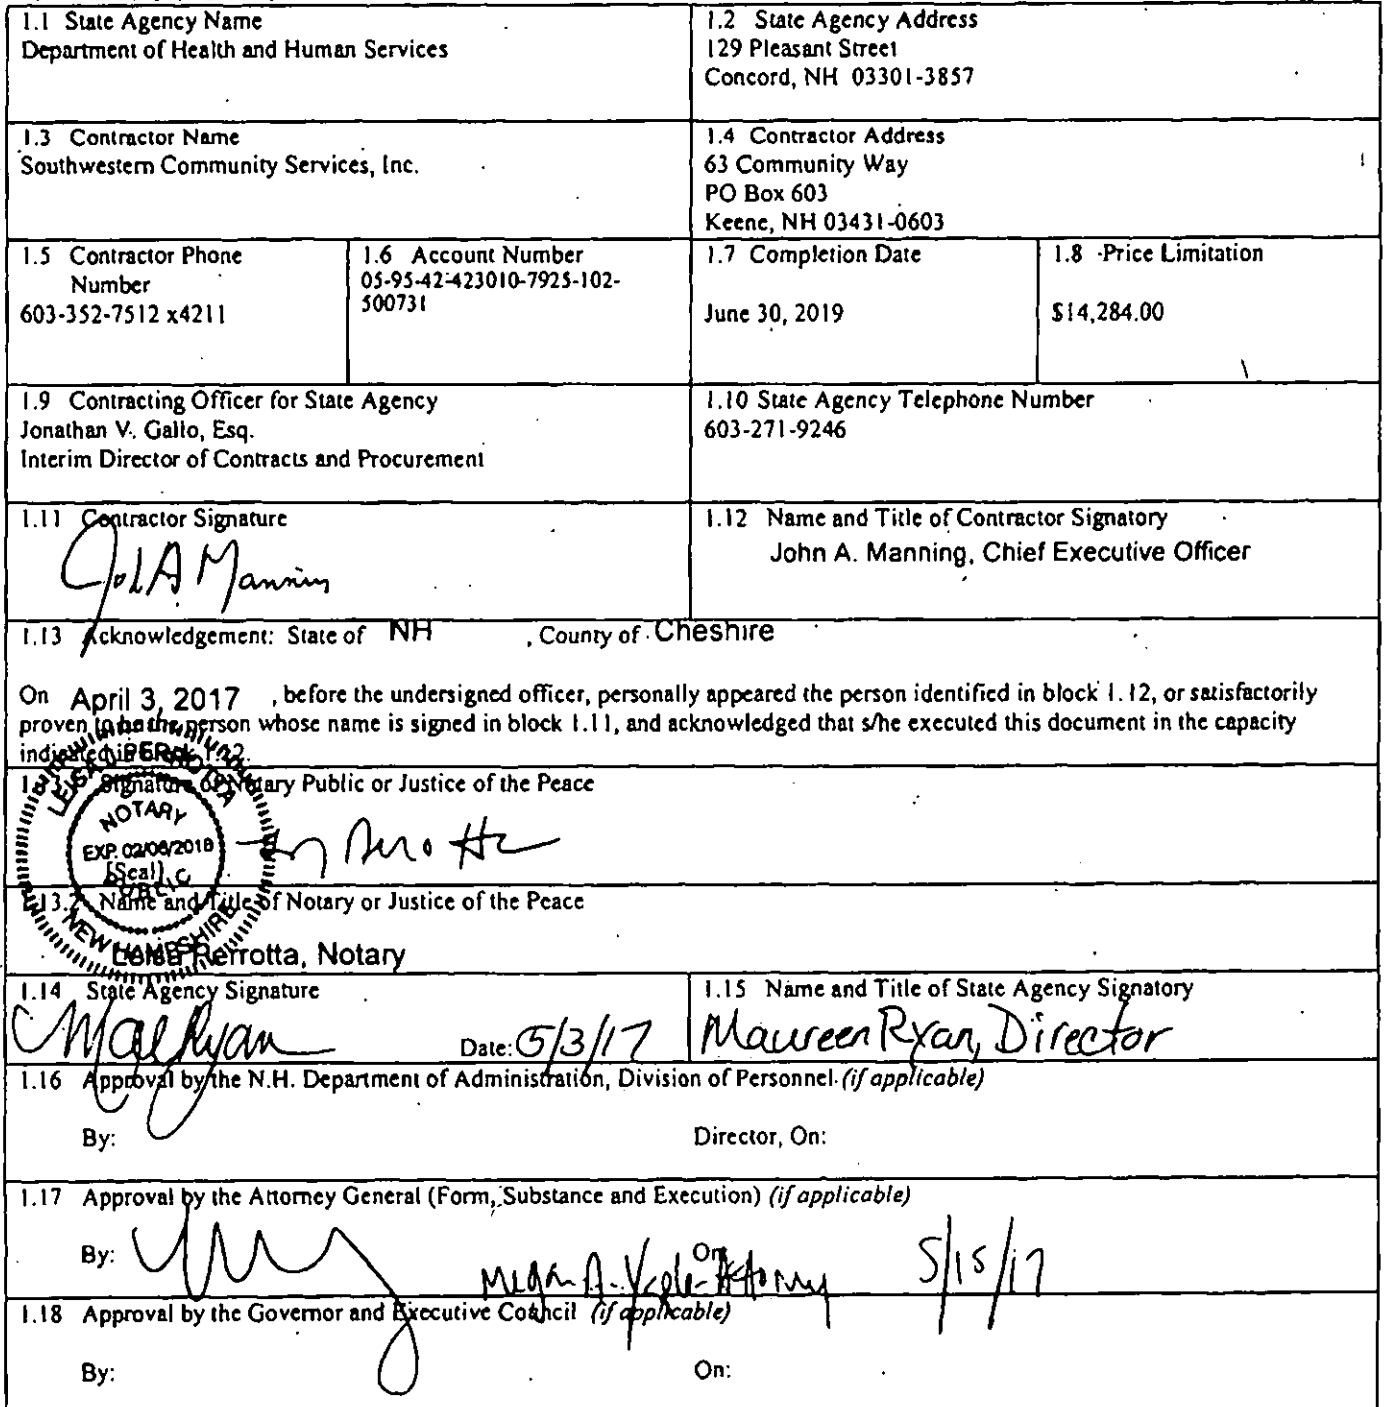 1.1 State Agency Name
Department of Health and Human Services
1.2 State Agency Address
129 Pleasant Street
Concord, NH 03301-3857
1.3 Contractor Name
Southwestern Community Services, Inc.
1.4 Contractor Address
63 Community Way
PO Box 603
Keene, NH 03431-0603
1.5 Contractor Phone
Number
603-352-7512 x4211
1.6 Account Number
05-95-42-423010-7925-102-
500731
1.7 Completion Date
June 30, 2019
1.8 Price Limitation
$14,284.00
1.9 Contracting Officer for State Agency
Jonathan V. Gallo, Esq.
Interim Director of Contracts and Procurement
1.10 State Agency Telephone Number
603-271-9246
1.11 Contractor Signature
John A Manning
1.12 Name and Title of Contractor Signatory
John A. Manning, Chief Executive Officer
1.13 Acknowledgement: State of NH , County of Cheshire
On April 3, 2017 , before the undersigned officer, personally appeared the person identified in block 1.12, or satisfactorily
proven to be the person whose name is signed in block 1.11, and acknowledged that s/he executed this document in the capacity
indicated in block 1.12.
1.13.1 Signature of Notary Public or Justice of the Peace
LEISA PERROTTA
NOTARY
EXP. 02/06/2018
[Seal]
PUBLIC
NEW HAMPSHIRE
1.13.2 Name and Title of Notary or Justice of the Peace
Leisa Perrotta, Notary
1.14 State Agency Signature
Date: 5/3/17
1.15 Name and Title of State Agency Signatory
Maureen Ryan, Director
1.16 Approval by the N.H. Department of Administration, Division of Personnel (if applicable)
By:
Director, On:
1.17 Approval by the Attorney General (Form, Substance and Execution) (if applicable)
By:
On:
Megan A. - Attorney 5/15/17
1.18 Approval by the Governor and Executive Council (if applicable)
By:
On: